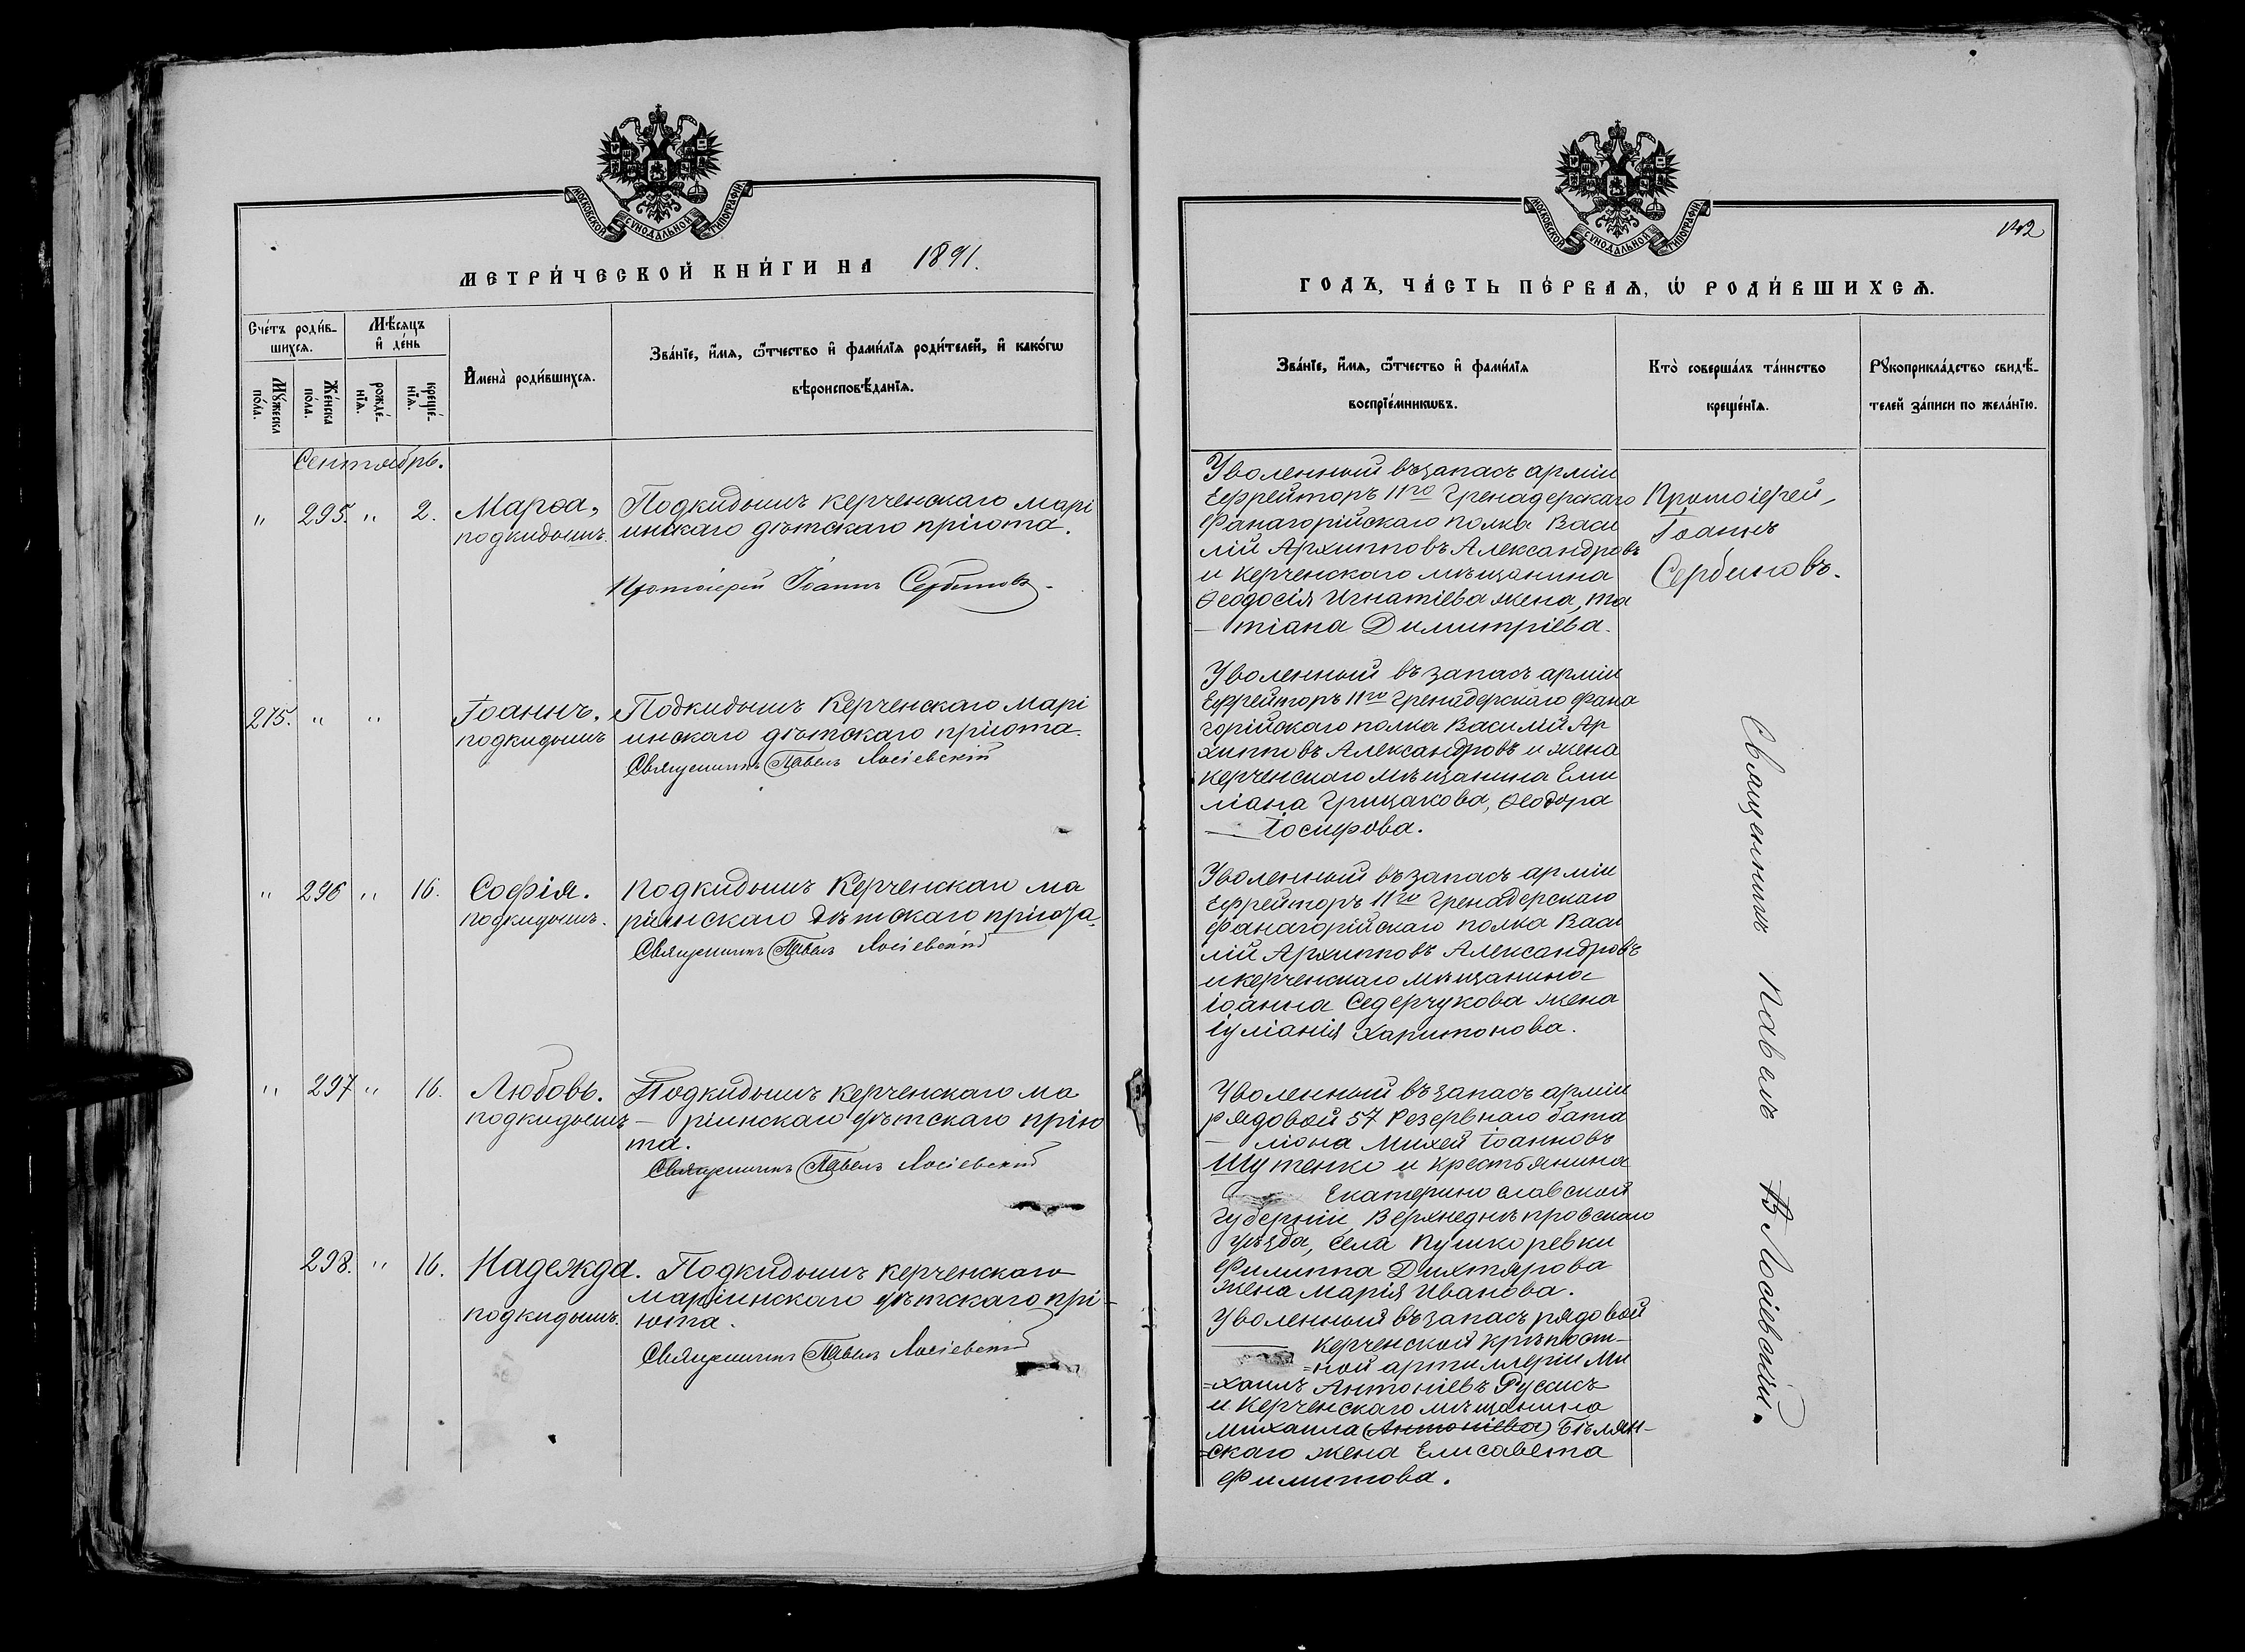 МОСКОВСКОЙ СѴНОДАЛЬНОЙ ТИПОГРАФІИ
МЕТРИ́ЧЕСКОЙ КНИ́ГИ НА 1891.
Сче́тъ роди́в-
шихсѧ.
Мѣ́сѧцъ
и҆ де́нь
Мꙋ́жеска
по́ла.
Же́нска
по́ла.
рожде́-
нїѧ.
креще́-
нїѧ.
И҆мена̀ роди́вшихсѧ.
Зва́нїе, и҆́мѧ, ѻ҆́тчество и҆ фами́лїѧ роди́телей, и҆ како́гѡ
вѣроисповѣ́данїѧ.
Сентябрь.
" 295. " 2. Марѳа, Подкидышъ Керченскаго марі
подкидышъ. инскаго дѣтскаго пріюта.
Протоіерей Іоаннъ Сербиновъ
275. " " Іоаннъ. Подкидышъ Керченскаго Марі
подкидышъ инскаго дѣтскаго пріюта.
Священникъ Павелъ Лосіевскій
" 296 " 16. Софія. Подкидышъ Керченскаго ма
подкидышъ. ріинскаго дѣтскаго пріюта.
Священникъ Павелъ Лосіевскій
" 297 " 16. Любовь. Подкидышъ Керченскаго ма
подкидышъ – ріинскаго дѣтскаго прію
та.
Священникъ Павелъ Лосіевскій
298. " 16. Надежда. Подкидышъ Керченскаго
Маріинскаго дѣтскаго прі-
подкидышъ. юта.
Священникъ Павелъ Лосіевскій
МОСКОВСКОЙ СѴНОДАЛЬНОЙ ТИПОГРАФІИ
ГОДЪ, ЧА́СТЬ ПЕ́РВАѦ, Ѡ҆ РОДИ́ВШИХСѦ.
Зва́нїе, и҆́мѧ, ѻ҆́тчество и҆ фами́лїѧ
воспрїе́мникѡвъ.
Кто̀ соверша́лъ та́инство
креще́нїѧ.
Рꙋкоприкла́дство свидѣ́-
телей за́писи по жела́нїю.
Уволенный въ запасъ арміи
Ефрейторъ 11го Гренадерскаго
Фанагорійскаго полка Васи
лій Архипповъ Александровъ
и Керченскаго мѣщанина
Ѳеодосія Игнатіева жена, Та
– тіана Димитріева.
Протоіерей,
Іоаннъ
Сербиновъ.
Уволенный въ запасъ арміи
Ефрейторъ 11го Гренадерскаго Фана
горійскаго полка Василій Ар
хипповъ Александровъ и жена
Керченскаго мѣщанина Еми
ліана Грищакова, Ѳеодора
— Іосифова.
Уволенный въ запасъ арміи
Ефрейторъ 11го Гренадерскаго
Фанагорійскаго полка Васи
лій Архипповъ Александровъ
и Керченскаго мѣщанина
Іоанна Седерчукова жена
Іуліанія Харитонова.
Уволенный въ запасъ арміи
рядовой 57 Резервнаго бата
– ліона Михей Іоанновъ
Шутенко и крестьянина
Екатеринославской
Губерніи, Верхнеднѣпровскаго
уѣзда, села Пушкоревки
Филиппа Дихтярова
жена Марія Иванова.
Уволенный въ запасъ рядовой
Керченской крѣпост-
=ной артиллеріи Ми
=хаилъ Антоніевъ Руссисъ
и Керченскаго мѣщанина
Михаила (Антоніева) Бѣлян-
=скаго жена Елисавета
Филиппова.
Священникъ Павелъ Лосіевскій.